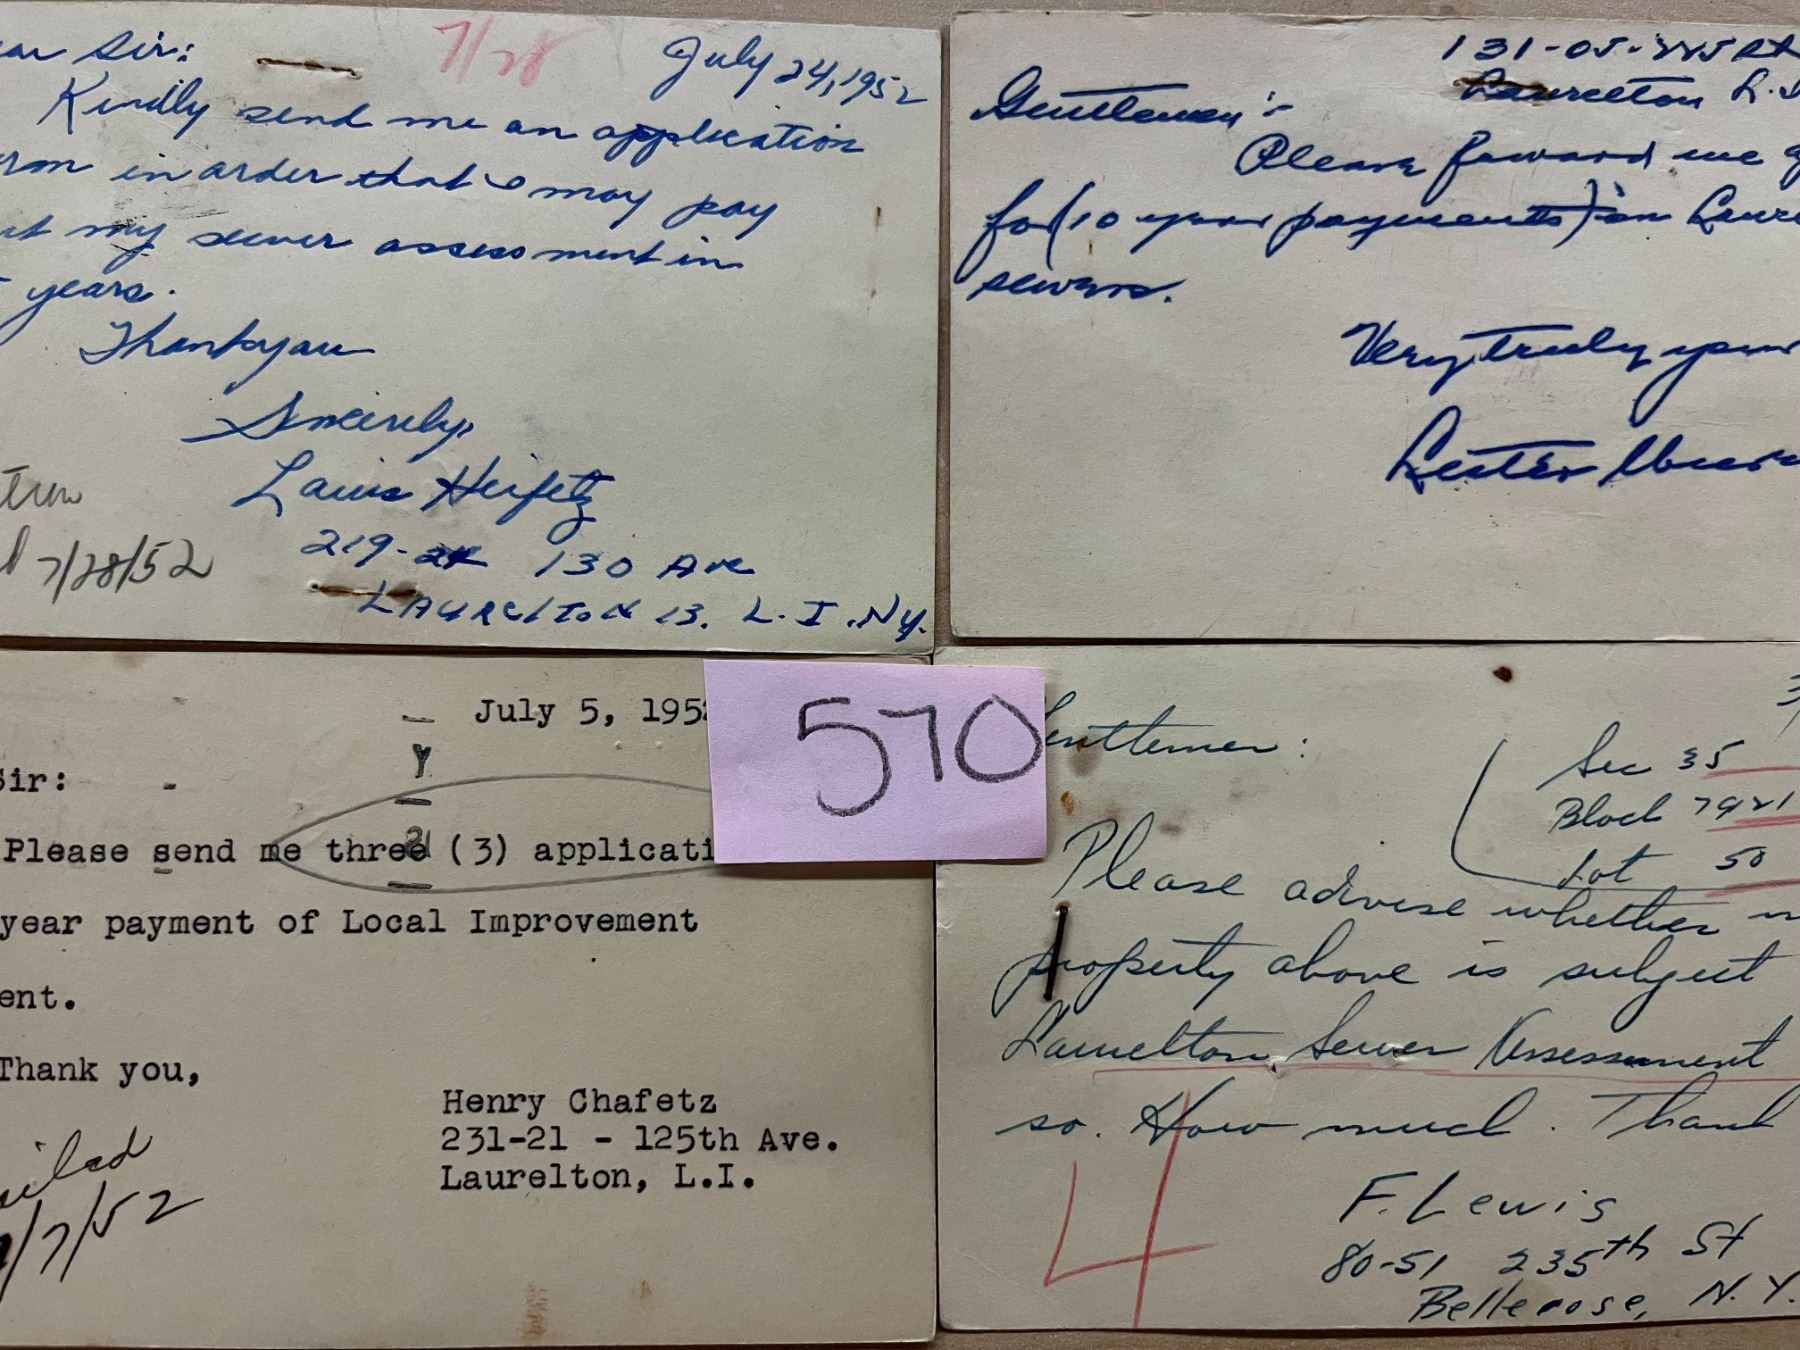 ar Sir:
7/28
July 24, 1952
Kindly send me an application
rm in order that I may pay
my sewer assessment in
years.
Thank you
Sincerely,
Louis Heifetz
219- 130 Ave
LAURELTON 13. L.I. NY.
7/28/52
131-05-225 St
Laurelton L.I
Gentlemen:
Please forward me
for (10 year payments) in Laure
sewers.
Very truly your
Lester
July 5, 195
Y
Sir:
Please send me three (3) applicati
year payment of Local Improvement
ent.
Thank you,
Henry Chafetz
231-21 - 125th Ave.
Laurelton, L.I.
ailed
/7/52
570
entlemen:
Sec 35
Block 7921
Lot 50
Please advise whether
property above is subject
Laurelton Sewer Assessment
so. How much. Thank
4
F. Lewis
80-51 235th St
Bellerose, N.Y.